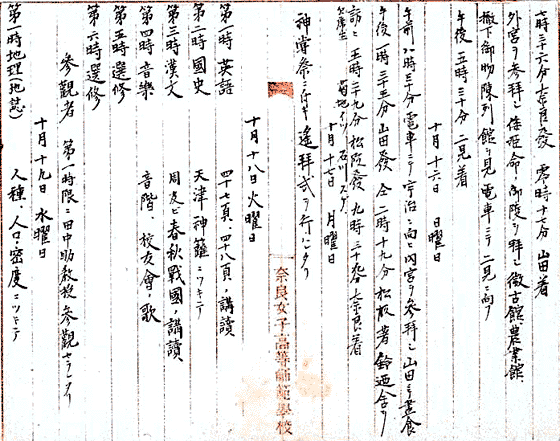 七時三十六分奈良発　零時十七分　山田着
外宮ヲ参拝シ倭姫命ノ御陵ヲ拝シ徴古館、農業館、
撤下御物陳列館ヲ見電車ニテ二見ニ向フ
午後五時三十分二見着
十月十六日　日曜日
午前八時三十分電車ニテ宇治ニ向ヒ内宮ヲ参拝シ山田ニテ昼食
午後一時三十五分山田発　仝二時十九分松阪着鈴廼舎ヲ
訪ヒ五時二十九分松阪発　九時三十分奈良着
十月十七日　月曜日
神嘗祭ニ付キ遥拝式ヲ行ヒタリ
奈良女子高等師範學校
十月十八日火曜日
第一時　英語　四十七頁、四十八頁ノ講読
第二時　國史　天津神籬ニツキテ
第三時　漢文　周及ビ春秋戰國ノ講讀
第四時　音樂　音階、校友會ノ歌
第五時　選修
第六時　選修
参觀者　第一時限ニ田中助教授参觀セラレタリ
十月十九日　水曜日
第一時　地理（地誌）　人種、人口ノ密度ニツキテ